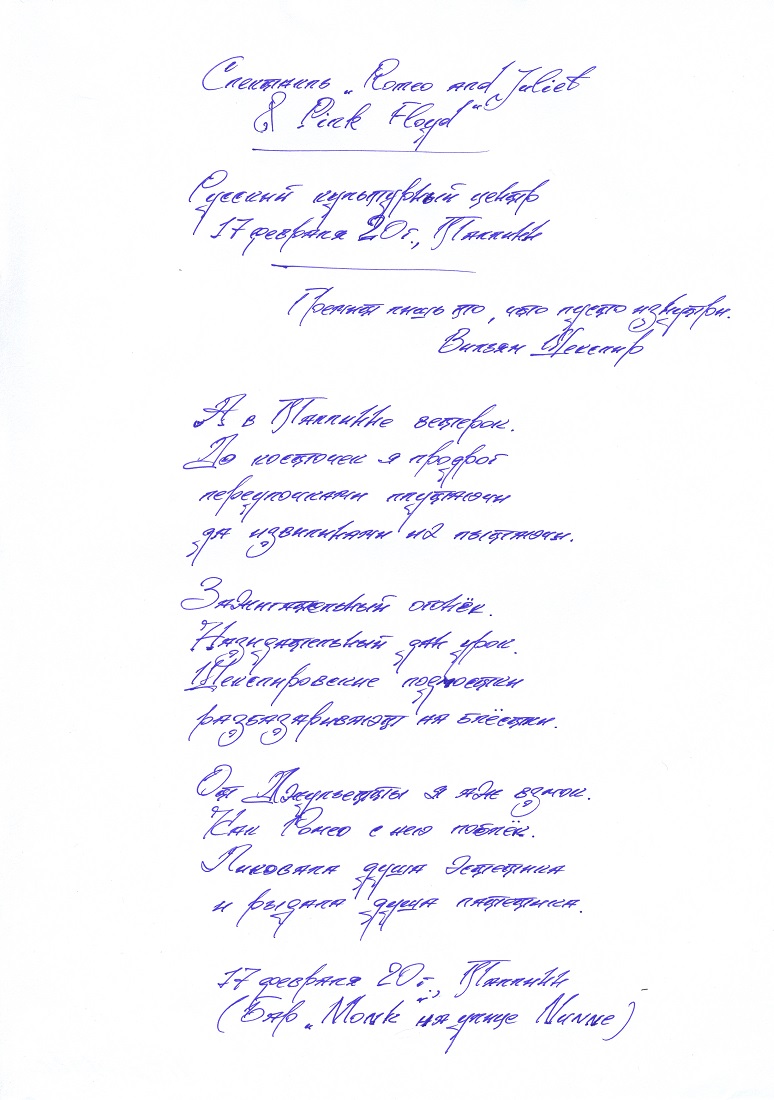 Спектакль „Romeo and Juliet
& Pink Floyd"
Русский культурный центр
17 февраля 20 г., Таллинн
Гремит лишь то, что пусто изнутри.
Вильям Шекспир
А в Таллинне ветерок.
До косточек я продрог
переулочками плутаючи
да извилинами их пытаючи.
Зажигательный огонёк.
Назидательный дан урок.
Шекспировские подмостки
разбазаривают на блёстки.
От Джульетты я аж взмок.
Как Ромео с нею поблёк.
Ликовала душа эстетика
и рыдала душа патетика.
17 февраля 20 г., Таллинн
(Бар „Monk на улице Nunne)